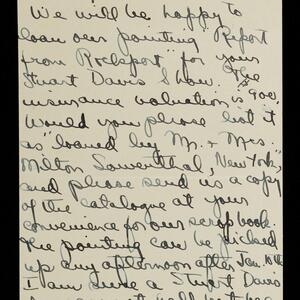 We will be happy to
loan our painting "Report
from Rockport" for your
Stuart Davis Show. The
insurance valuation is 900.
Would you please list it
as "loaned by Mr. + Mrs.
Milton Lowenthal, New York,"
and please send us a copy
of the catalogue at your
convenience for our scrap book.
The painting can be picked
up any afternoon after Jan. 10th
I am sure a Stuart Davis